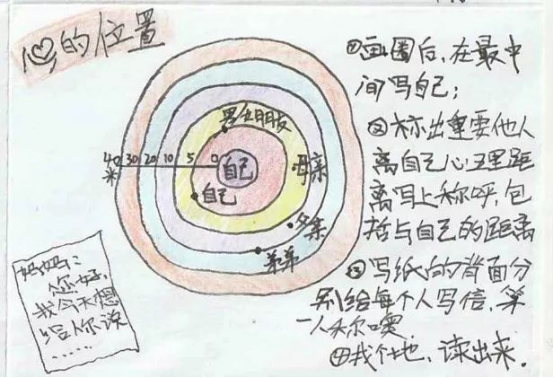 心的位置
男女朋友
40 30 20 10 5 0
米
自己
母亲
自己
父亲
弟弟
①画圈后,在最中
间写自己;
②标出重要他人
离自己心里距
离写上称呼,包
括与自己的距离
③写纸的背面分
别给每个人写信,第
一人称噢
④找个地,读出来.
妈妈:
您好,
我今天想
给你说
......